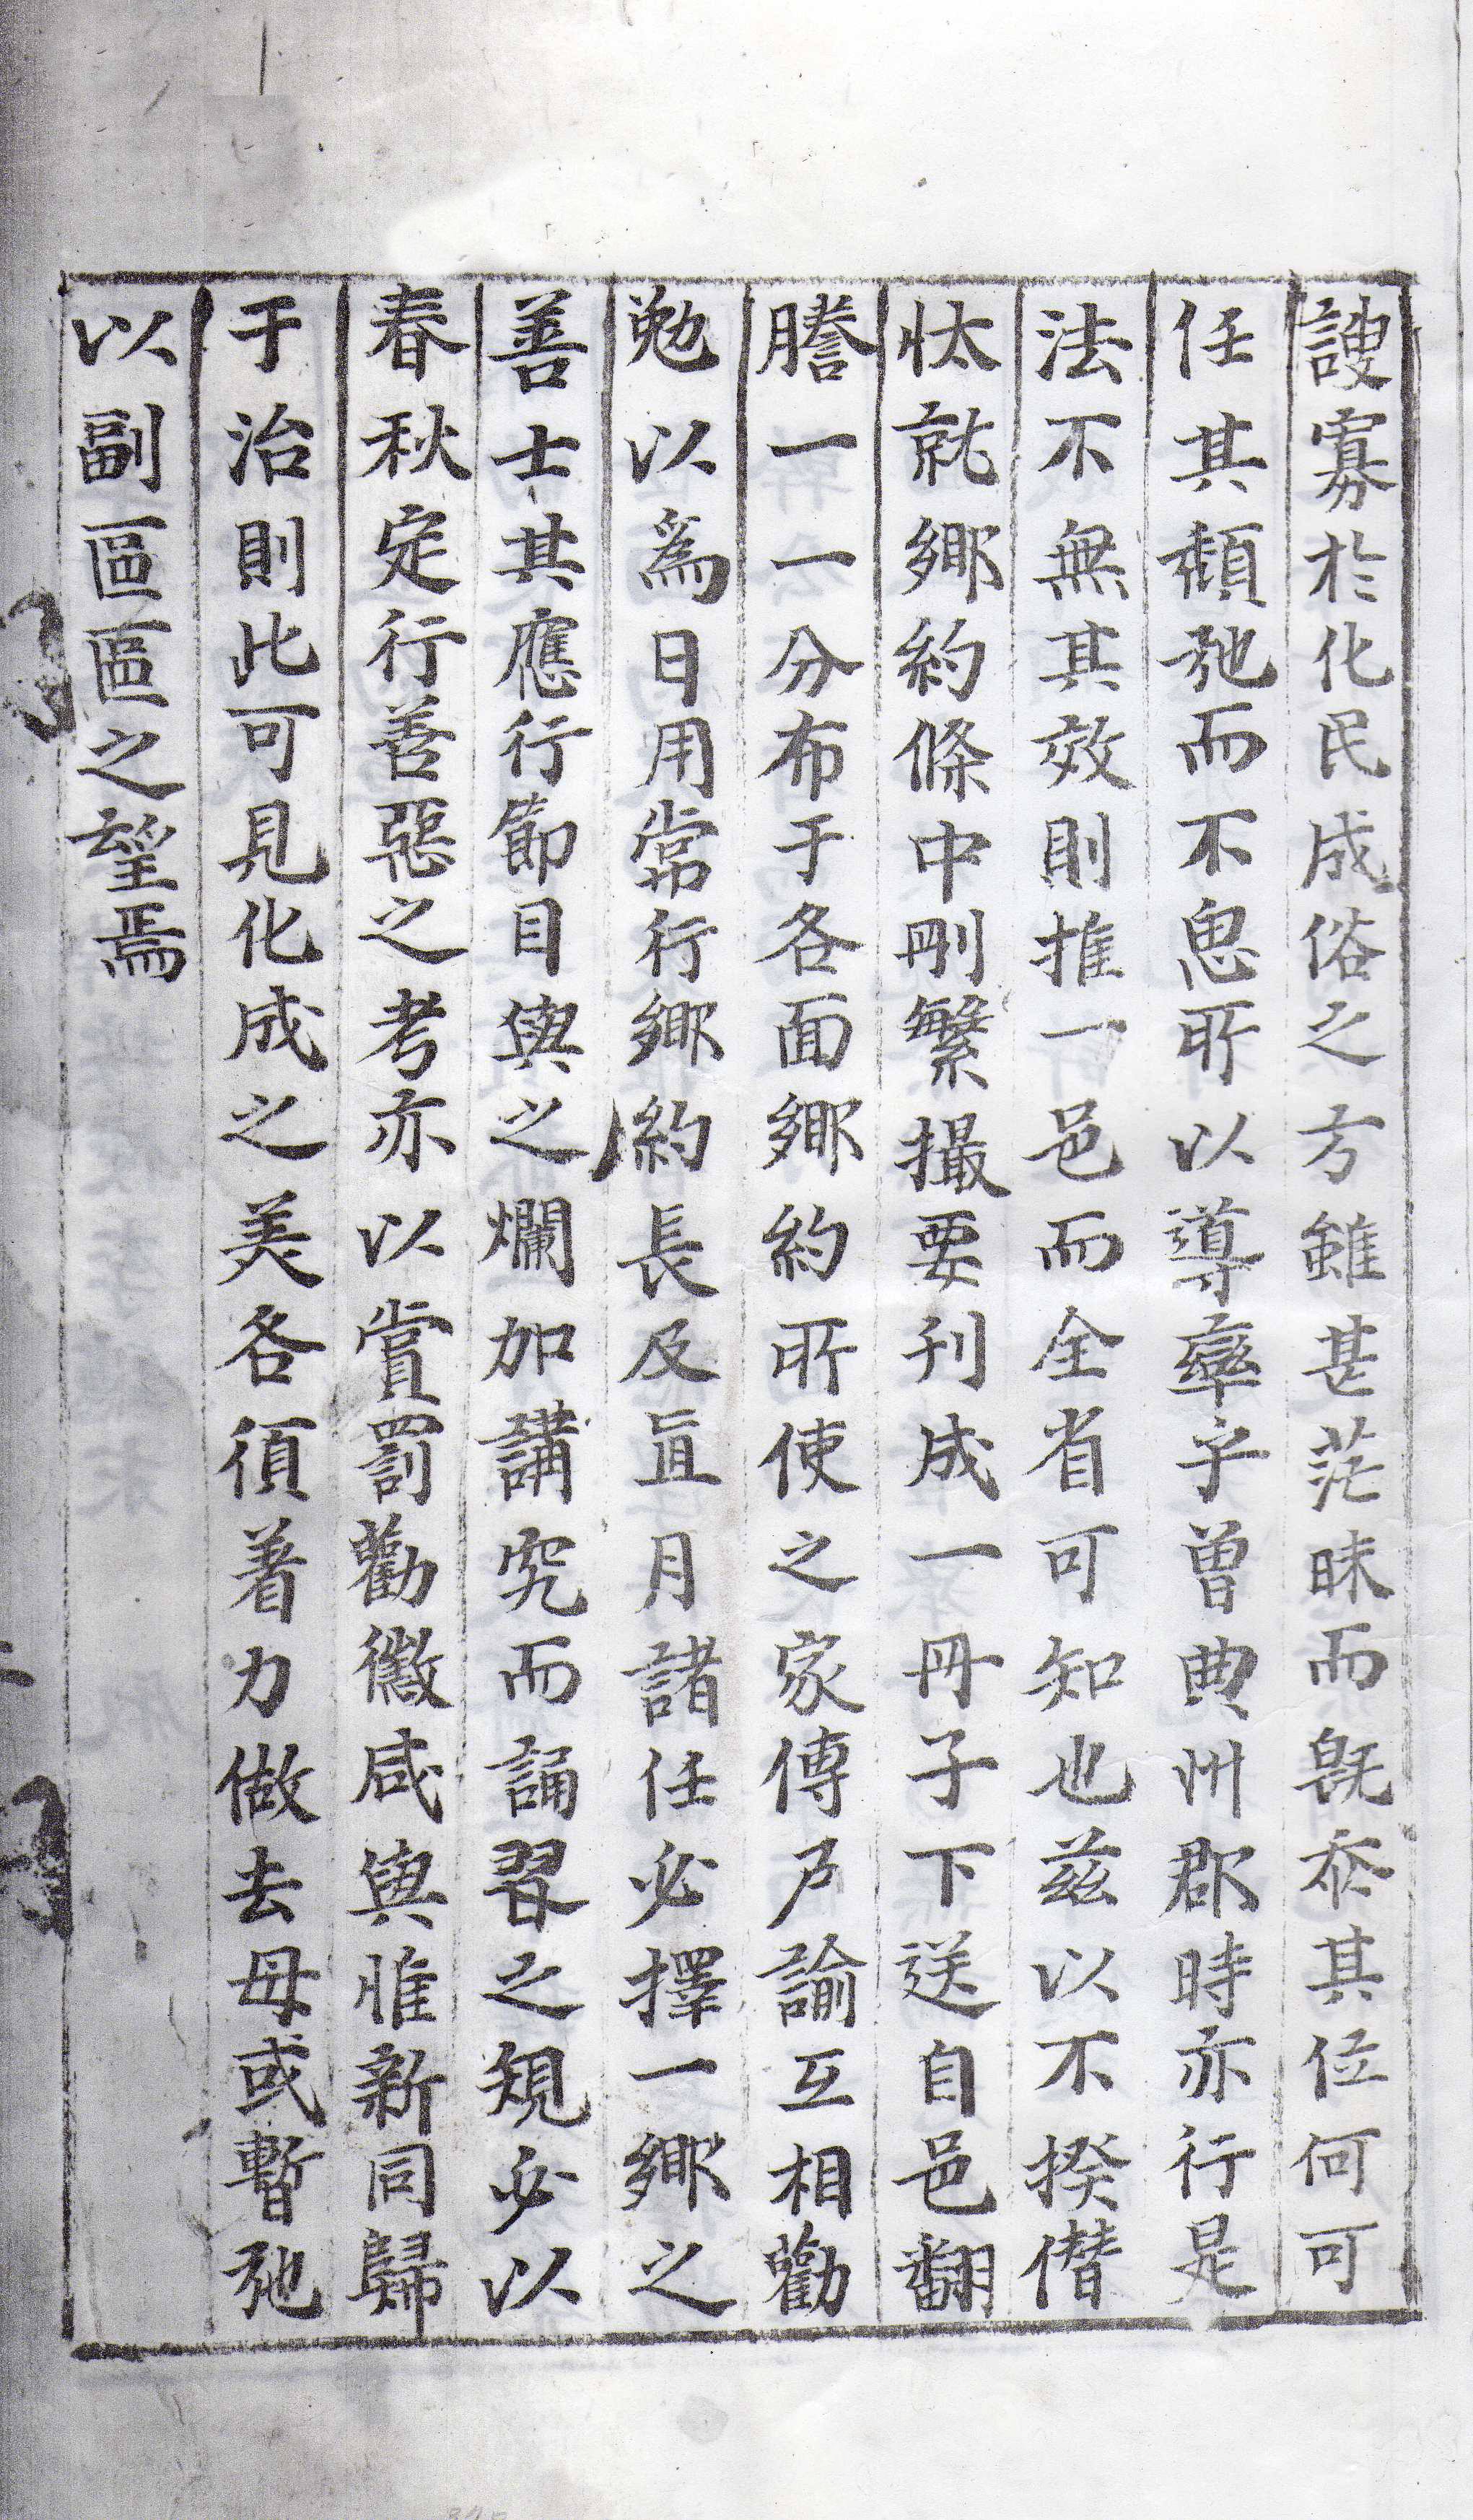 謏寡於化民成俗之方雖甚茫昧而旣忝其位何可
任其頹弛而不思所以導率乎曾典州郡時亦行是
法不無其效則推一邑而全省可知也玆以不揆僭
忲就鄕約條中刪繁撮要刊成一冊子下送自邑翻
謄一一分布于各面鄕約所使之家傳戶諭互相勸
勉以爲日用常行鄕約長及直月諸任必擇一鄕之
善士其應行節目與之爛加講究而誦習之規必以
春秋定行善惡之考亦以賞罰勸懲咸與惟新同歸
于治則此可見化成之美各須着力做去毋或暫弛
以副區區之望焉